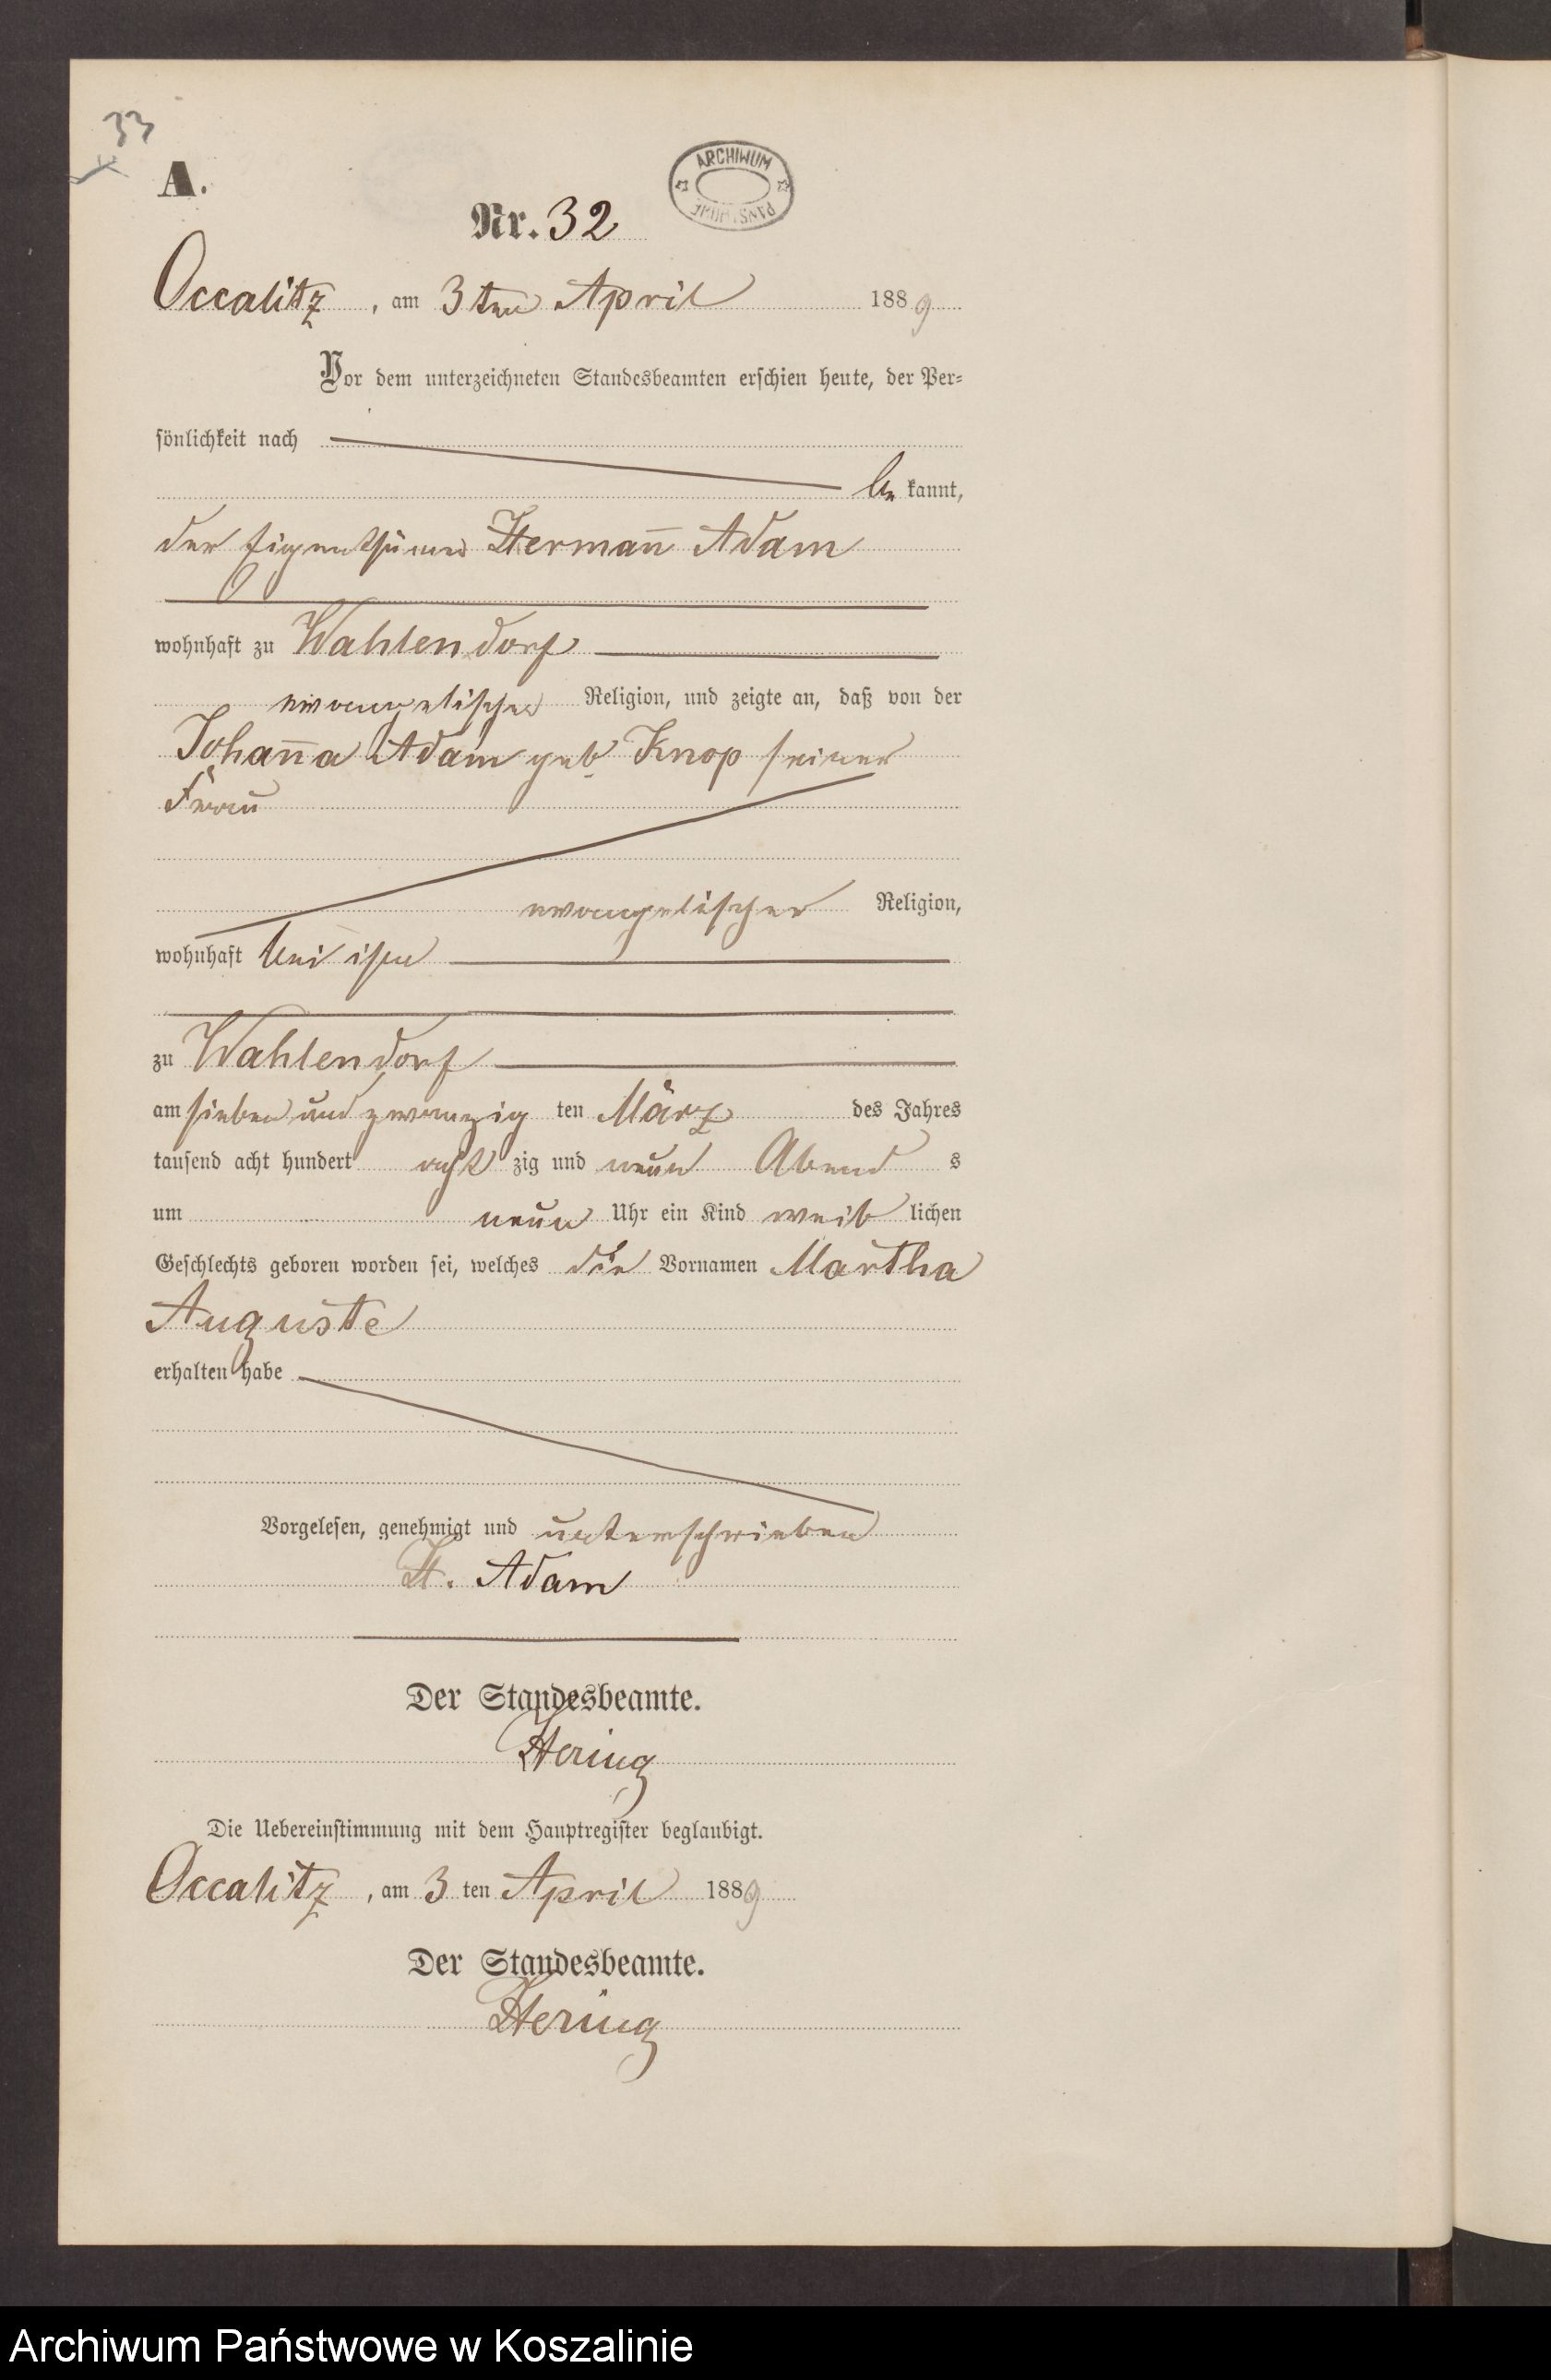 33
A.
ARCHIWUM
Nr. 32
Occalitz, am 3ten April 1889
Vor dem unterzeichneten Standesbeamten erschien heute, der Per-
sönlichkeit nach
bekannt,
der Eigenthümer Herman̄ Adam
wohnhaft zu Wahlendorf
evangelischer Religion, und zeigte an, daß von der
Johan̄a Adam geb. Knop seiner
Frau
evangelischer Religion,
wohnhaft bei ihm
zu Wahlendorf
am sieben und zwanzig ten März des Jahres
tausend acht hundert acht zig und neun Abend s
um neun Uhr ein Kind weib lichen
Geschlechts geboren worden sei, welches die Vornamen Martha
Auguste
erhalten habe
Vorgelesen, genehmigt und unterschrieben
H. Adam
Der Standesbeamte.
Hering
Die Uebereinstimmung mit dem Hauptregister beglaubigt.
Occalitz, am 3 ten April 1889
Der Standesbeamte.
Hering
Archiwum Państwowe w Koszalinie